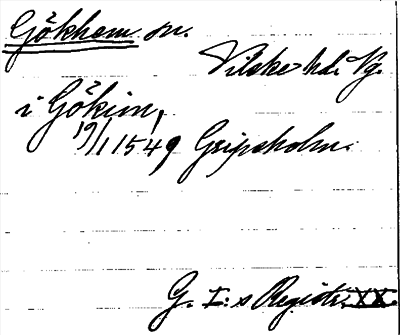 Gökhem sn.
Vilske hd. Vg.
i Gökim,
19/1 1549 Gripsholm.
G. I:s Registr. XX.